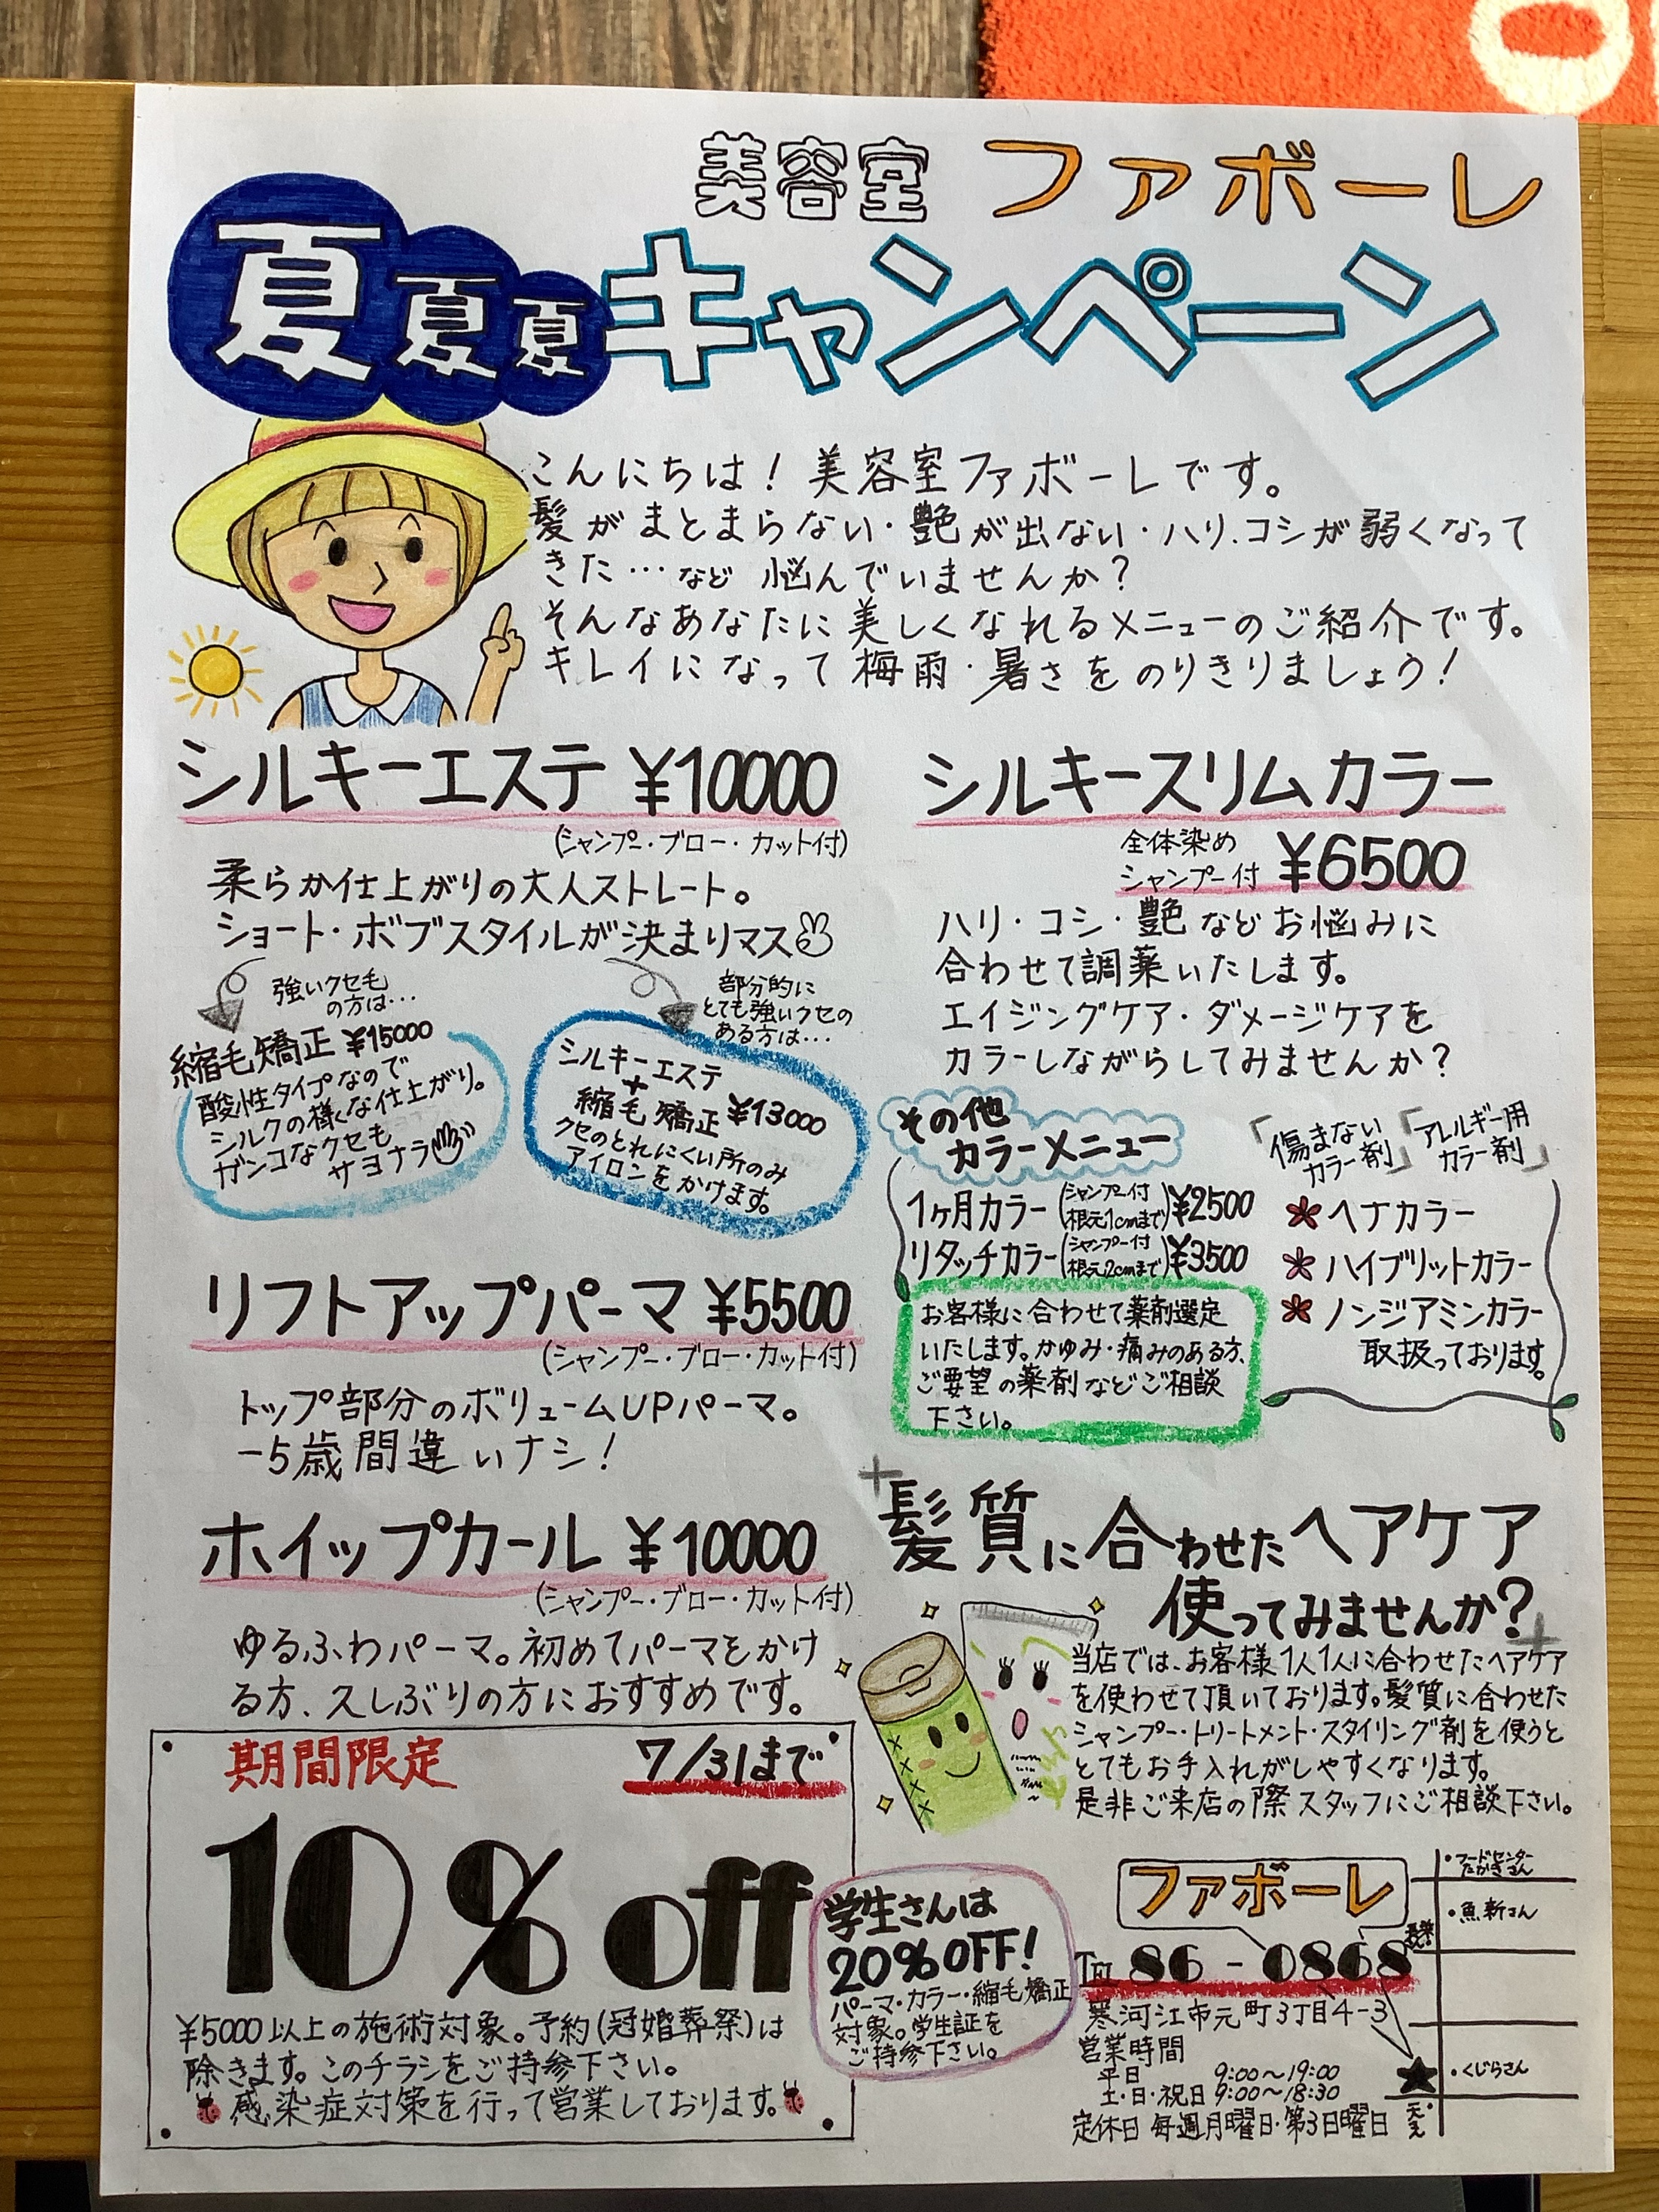 美容室 ファボーレ
夏夏夏キャンペーン
こんにちは！美容室ファボーレです。
髪がまとまらない・艶が出ない・ハリ、コシが弱くなって
きた…など 悩んでいませんか？
そんなあなたに美しくなれるメニューのご紹介です。
キレイになって梅雨・暑さをのりきりましょう！
シルキーエステ ¥10000
(シャンプー・ブロー・カット付)
柔らか仕上がりの大人ストレート。
ショート・ボブスタイルが決まりマス
強いクセ毛
の方は…
縮毛矯正 ¥15000
酸性タイプなので
シルクの様な仕上がり。
ガンコなクセも
サヨナラ
部分的に
とても強いクセの
ある方は…
シルキーエステ
+
縮毛矯正 ¥13000
クセのとれにくい所のみ
アイロンをかけます。
リフトアップパーマ ¥5500
(シャンプー・ブロー・カット付)
トップ部分のボリュームUPパーマ。
-5歳間違いナシ！
ホイップカール ¥10000
(シャンプー・ブロー・カット付)
ゆるふわパーマ。初めてパーマをかけ
る方、久しぶりの方におすすめです。
シルキースリムカラー
全体染め
シャンプー付 ¥6500
ハリ・コシ・艶などお悩みに
合わせて調薬いたします。
エイジングケア・ダメージケアを
カラーしながらしてみませんか？
その他
カラーメニュー
1ヶ月カラー(シャンプー付 根元1cmまで)¥2500
リタッチカラー(シャンプー付 根元2cmまで)¥3500
お客様に合わせて薬剤選定
いたします。かゆみ・痛みのある方、
ご要望の薬剤などご相談
下さい。
「傷まない
カラー剤」
「アレルギー用
カラー剤」
ヘナカラー
ハイブリットカラー
ノンジアミンカラー
取扱っております。
髪質に合わせたヘアケア
使ってみませんか？
当店では、お客様1人1人に合わせたヘアケア
を使わせて頂いております。髪質に合わせた
シャンプー・トリートメント・スタイリング剤を使うと
とてもお手入れがしやすくなります。
是非ご来店の際スタッフにご相談下さい。
期間限定 7/31まで
10%off
¥5000以上の施術対象。予約(冠婚葬祭)は
除きます。このチラシをご持参下さい。
感染症対策を行って営業しております。
学生さんは
20%OFF!
パーマ・カラー・縮毛矯正
対象。学生証を
ご持参下さい。
ファボーレ
Tel 86-0868
寒河江市元町3丁目4-3
営業時間
平日 9:00～19:00
土・日・祝日 9:00～18:30
定休日 毎週月曜日・第3日曜日
・フードセンター
たかきさん
・魚新さん
・くじらさん